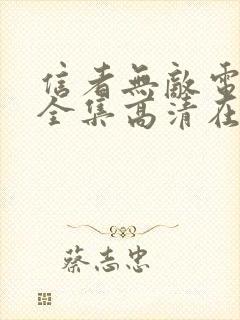 信者無敵電
全集高清在
蔡志忠